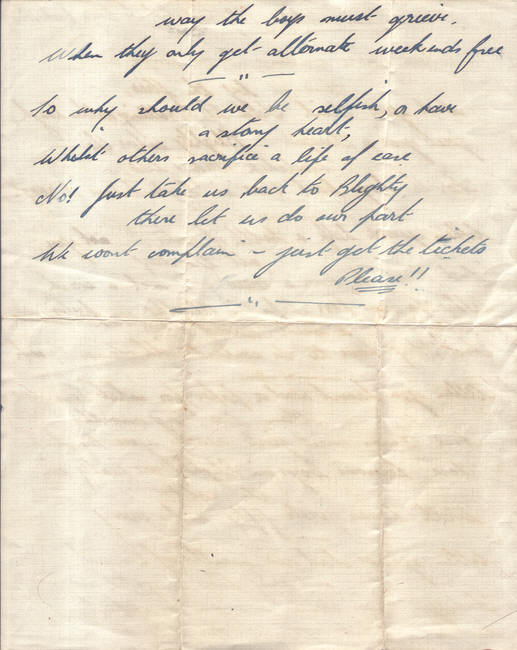 way the boys must grieve.
When they only get alternate weekends free
— " —
So why should we be selfish, or have
a stony heart,
Whilst others sacrifice a life of ease
No! Just take us back to Blighty
there let us do our part
We wont complain – just get the tickets
Please!!
— " —